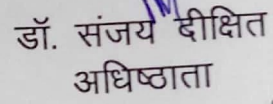 डॉ. संजय दीक्षित
अधिष्ठाता